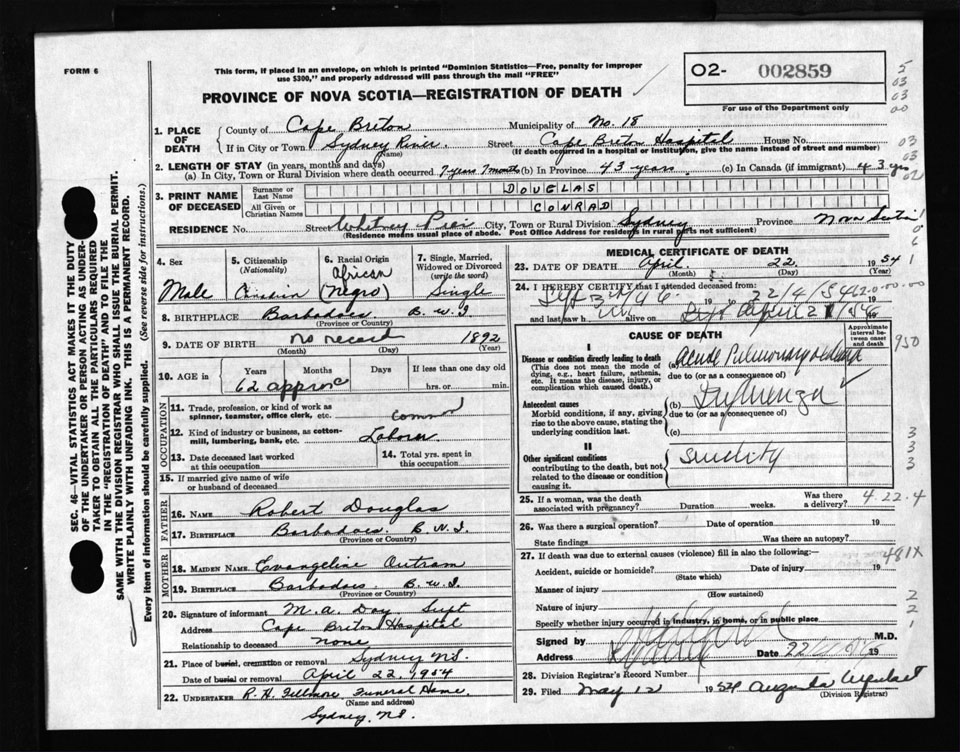 FORM 6
This form, if placed in an envelope, on which is printed "Dominion Statistics—Free, penalty for improper
use $300," and properly addressed will pass through the mail "FREE"
O2- 002859
For use of the Department only
PROVINCE OF NOVA SCOTIA—REGISTRATION OF DEATH
5
03
03
00
1. PLACE OF DEATH
County of Cape Breton Municipality of No. 18
If in City or Town Sydney River Street Cape Breton Hospital House No.
(Name) (If death occurred in a hospital or institution, give the name instead of street and number)
03
03
02
2. LENGTH OF STAY (in years, months and days)
(a) In City, Town or Rural Division where death occurred 7 years 7 months (b) In Province 43 years (c) In Canada (if immigrant) 43 yrs
3. PRINT NAME OF DECEASED
Surname or Last Name DOUGLAS
All Given or Christian Names CONRAD
RESIDENCE No. Street Whitney Pier City, Town or Rural Division Sydney Province Nova Scotia
(Residence means usual place of abode. Post Office Address for residents in rural parts not sufficient)
SEC. 46—VITAL STATISTICS ACT MAKES IT THE DUTY
OF THE UNDERTAKER OR PERSON ACTING AS UNDER-
TAKER TO OBTAIN ALL THE PARTICULARS REQUIRED
IN THE "REGISTRATION OF DEATH" AND TO FILE THE
SAME WITH THE DIVISION REGISTRAR WHO SHALL ISSUE THE BURIAL PERMIT.
WRITE PLAINLY WITH UNFADING INK. THIS IS A PERMANENT RECORD.
Every item of information should be carefully supplied. (See reverse side for instructions.)
4. Sex
Male
5. Citizenship
(Nationality)
6. Racial Origin
African
(Negro)
7. Single, Married,
Widowed or Divorced
(write the word)
Single
8. BIRTHPLACE Barbados B.W.I.
(Province or Country)
9. DATE OF BIRTH no record 1892
(Month) (Day) (Year)
10. AGE in Years Months Days If less than one day old
62 approx hrs. or min.
OCCUPATION
11. Trade, profession, or kind of work as
spinner, teamster, office clerk, etc. Common
12. Kind of industry or business, as cotton-
mill, lumbering, bank, etc. Laborer
13. Date deceased last worked
at this occupation
14. Total yrs. spent in
this occupation
15. If married give name of wife
or husband of deceased
FATHER
16. NAME Robert Douglas
17. BIRTHPLACE Barbados. B.W.I.
(Province or Country)
MOTHER
18. MAIDEN NAME Evangeline Outram
19. BIRTHPLACE Barbados B.W.I.
(Province or Country)
20. Signature of informant M.A. Day Supt
Address Cape Breton Hospital
Relationship to deceased none
21. Place of burial, cremation or removal Sydney NS.
Date of burial or removal April 22, 1954
22. UNDERTAKER R.H. Fillmore Funeral Home
(Name and address)
Sydney, NS.
MEDICAL CERTIFICATE OF DEATH
23. DATE OF DEATH April 22 1954
(Month) (Day) (Year)
24. I HEREBY CERTIFY that I attended deceased from:
Sept 19 to 22/4/54 19
and last saw h alive on 19
CAUSE OF DEATH
Approximate
interval be-
tween onset
and death
I
Disease or condition directly leading to death
(This does not mean the mode of
dying, e.g., heart failure, asthenia,
etc. It means the disease, injury, or
complication which caused death.)
(a) Acute Pulmonary oedema
due to (or as a consequence of)
Antecedent causes
Morbid conditions, if any, giving
rise to the above cause, stating the
underlying condition last.
(b) Influenza
due to (or as a consequence of)
(c)
II
Other significant conditions
contributing to the death, but not
related to the disease or condition
causing it.
Senility
950
3
3
3
25. If a woman, was the death
associated with pregnancy? Duration weeks. Was there
a delivery?
4.22.4
26. Was there a surgical operation? Date of operation 19
State findings Was there an autopsy?
27. If death was due to external causes (violence) fill in also the following:
481X
Accident, suicide or homicide? Date of injury 19
(State which)
Manner of injury
(How sustained)
Nature of injury
Specify whether injury occurred in industry, in home, or in public place
2
2
1
Signed by M.D.
Address Date 22 19
28. Division Registrar's Record Number
29. Filed May 12 1954 Augusta
(Division Registrar)